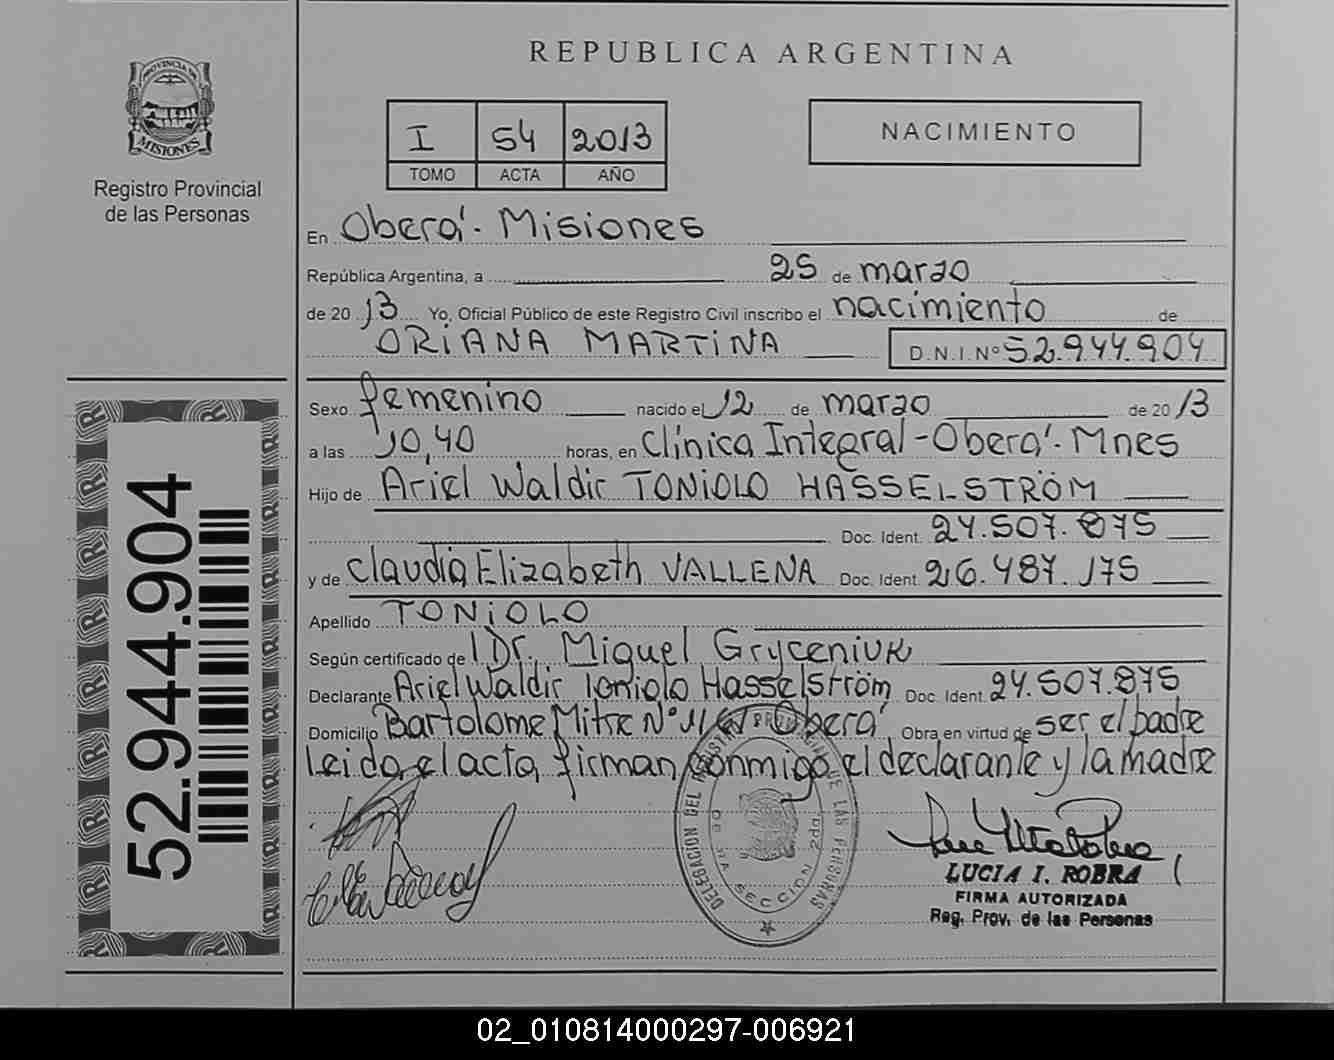 PROVINCIA DE
MISIONES
Registro Provincial
de las Personas
REPUBLICA ARGENTINA
I 54 2013
TOMO ACTA AÑO
NACIMIENTO
En Oberá - Misiones
República Argentina, a 25 de marzo
de 2013 Yo, Oficial Público de este Registro Civil inscribo el nacimiento de
ORIANA MARTINA D.N.I. Nº 52.944.904
Sexo femenino nacido el 12 de marzo de 2013
a las 10,40 horas, en Clínica Integral - Oberá - Mnes
Hijo de Ariel Waldir TONIOLO HASSELSTRÖM
Doc. Ident. 24.507.875
y de Claudia Elizabeth VALLENA Doc. Ident. 26.487.175
Apellido TONIOLO
Según certificado de Dr. Miguel Gryceniuk
Declarante Ariel Waldir Toniolo Hasselström Doc. Ident. 24.507.875
Domicilio Bartolome Mitre Nº Oberá Obra en virtud de ser el padre
Leida el acta, firman conmigo el declarante y la madre
DELEGACION DEL REGISTRO PROVINCIAL DE LAS PERSONAS
SECCION 2da.
LUCIA I. ROBRA
FIRMA AUTORIZADA
Reg. Prov. de las Personas
52.944.904
02_010814000297-006921